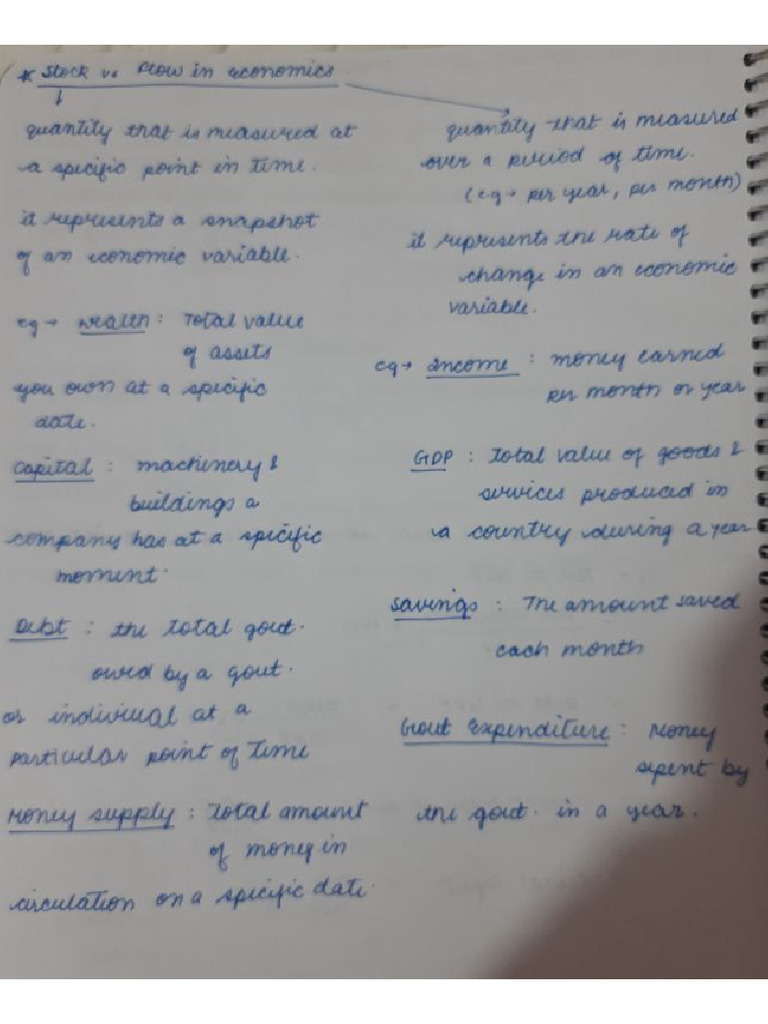 * Stock vs Flow in economics
quantity that is measured at
a specific point in time.
it represents a snapshot
of an economic variable.
eg → Wealth : Total value
of assets
you own at a specific
date.
Capital : machinery &
buildings a
company has at a specific
moment.
Debt : the total govt.
owed by a govt.
or indiviual at a
particular point of Time
Money supply : Total amount
of money in
circulation on a specific date.
quantity that is measured
over a period of time.
(eg → per year, per month)
it represents the rate of
change in an economic
variable.
eg → Income : money earned
per month or year
GDP : Total value of goods &
services produced in
a country during a year
Savings : The amount saved
each month
Govt Expenditure : Money
spent by
the govt. in a year.